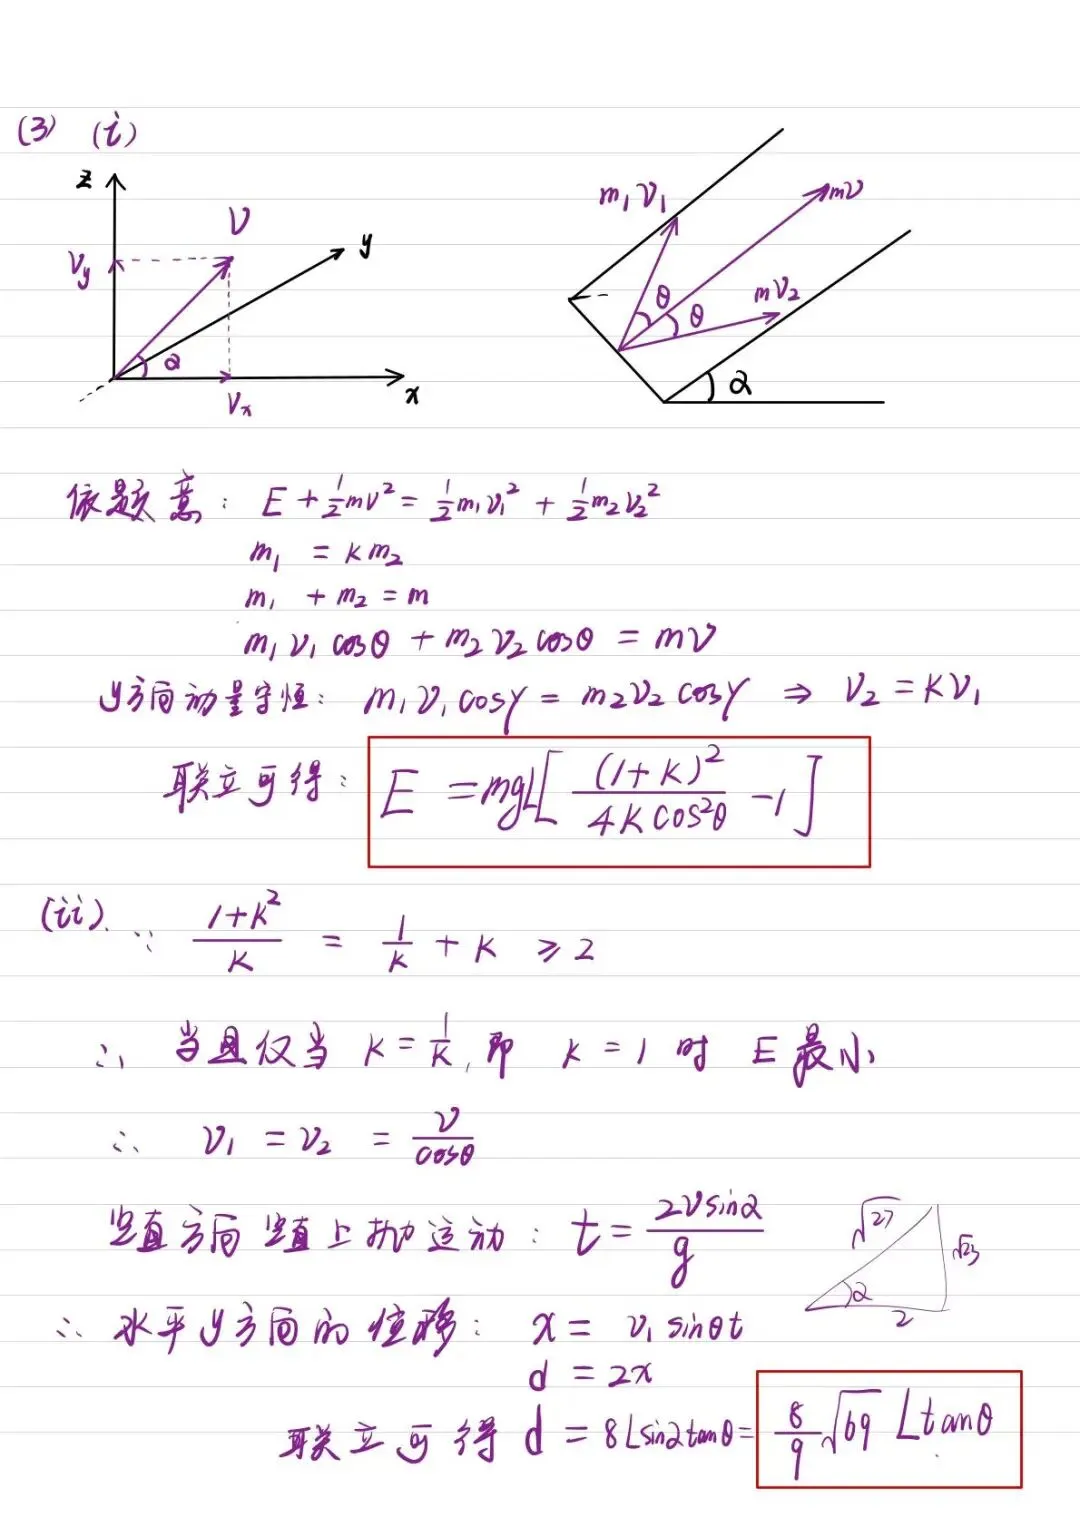 (3) (i)
z
V
y
Vy
α
x
Vx
m₁v₁
mv
θ
θ
mv₂
α
依题意: E + ½mv² = ½m₁v₁² + ½m₂v₂²
m₁ = km₂
m₁ + m₂ = m
m₁v₁cosθ + m₂v₂cosθ = mv
y方向动量守恒: m₁v₁cosγ = m₂v₂cosγ ⇒ v₂ = kv₁
联立可得: E = mgL[(1+k)²/(4kcos²θ) - 1]
(ii) ∵ (1+k²)/k = 1/k + k ≥ 2
∴ 当且仅当 k = 1/k, 即 k = 1 时 E最小
∴ v₁ = v₂ = v/cosθ
竖直方向竖直上抛运动: t = 2vsinα/g
√27
√23
α
2
∴ 水平y方向的位移: x = v₁sinθt
d = 2x
联立可得 d = 8Lsinαtanθ = 8/9 √69 Ltanθ